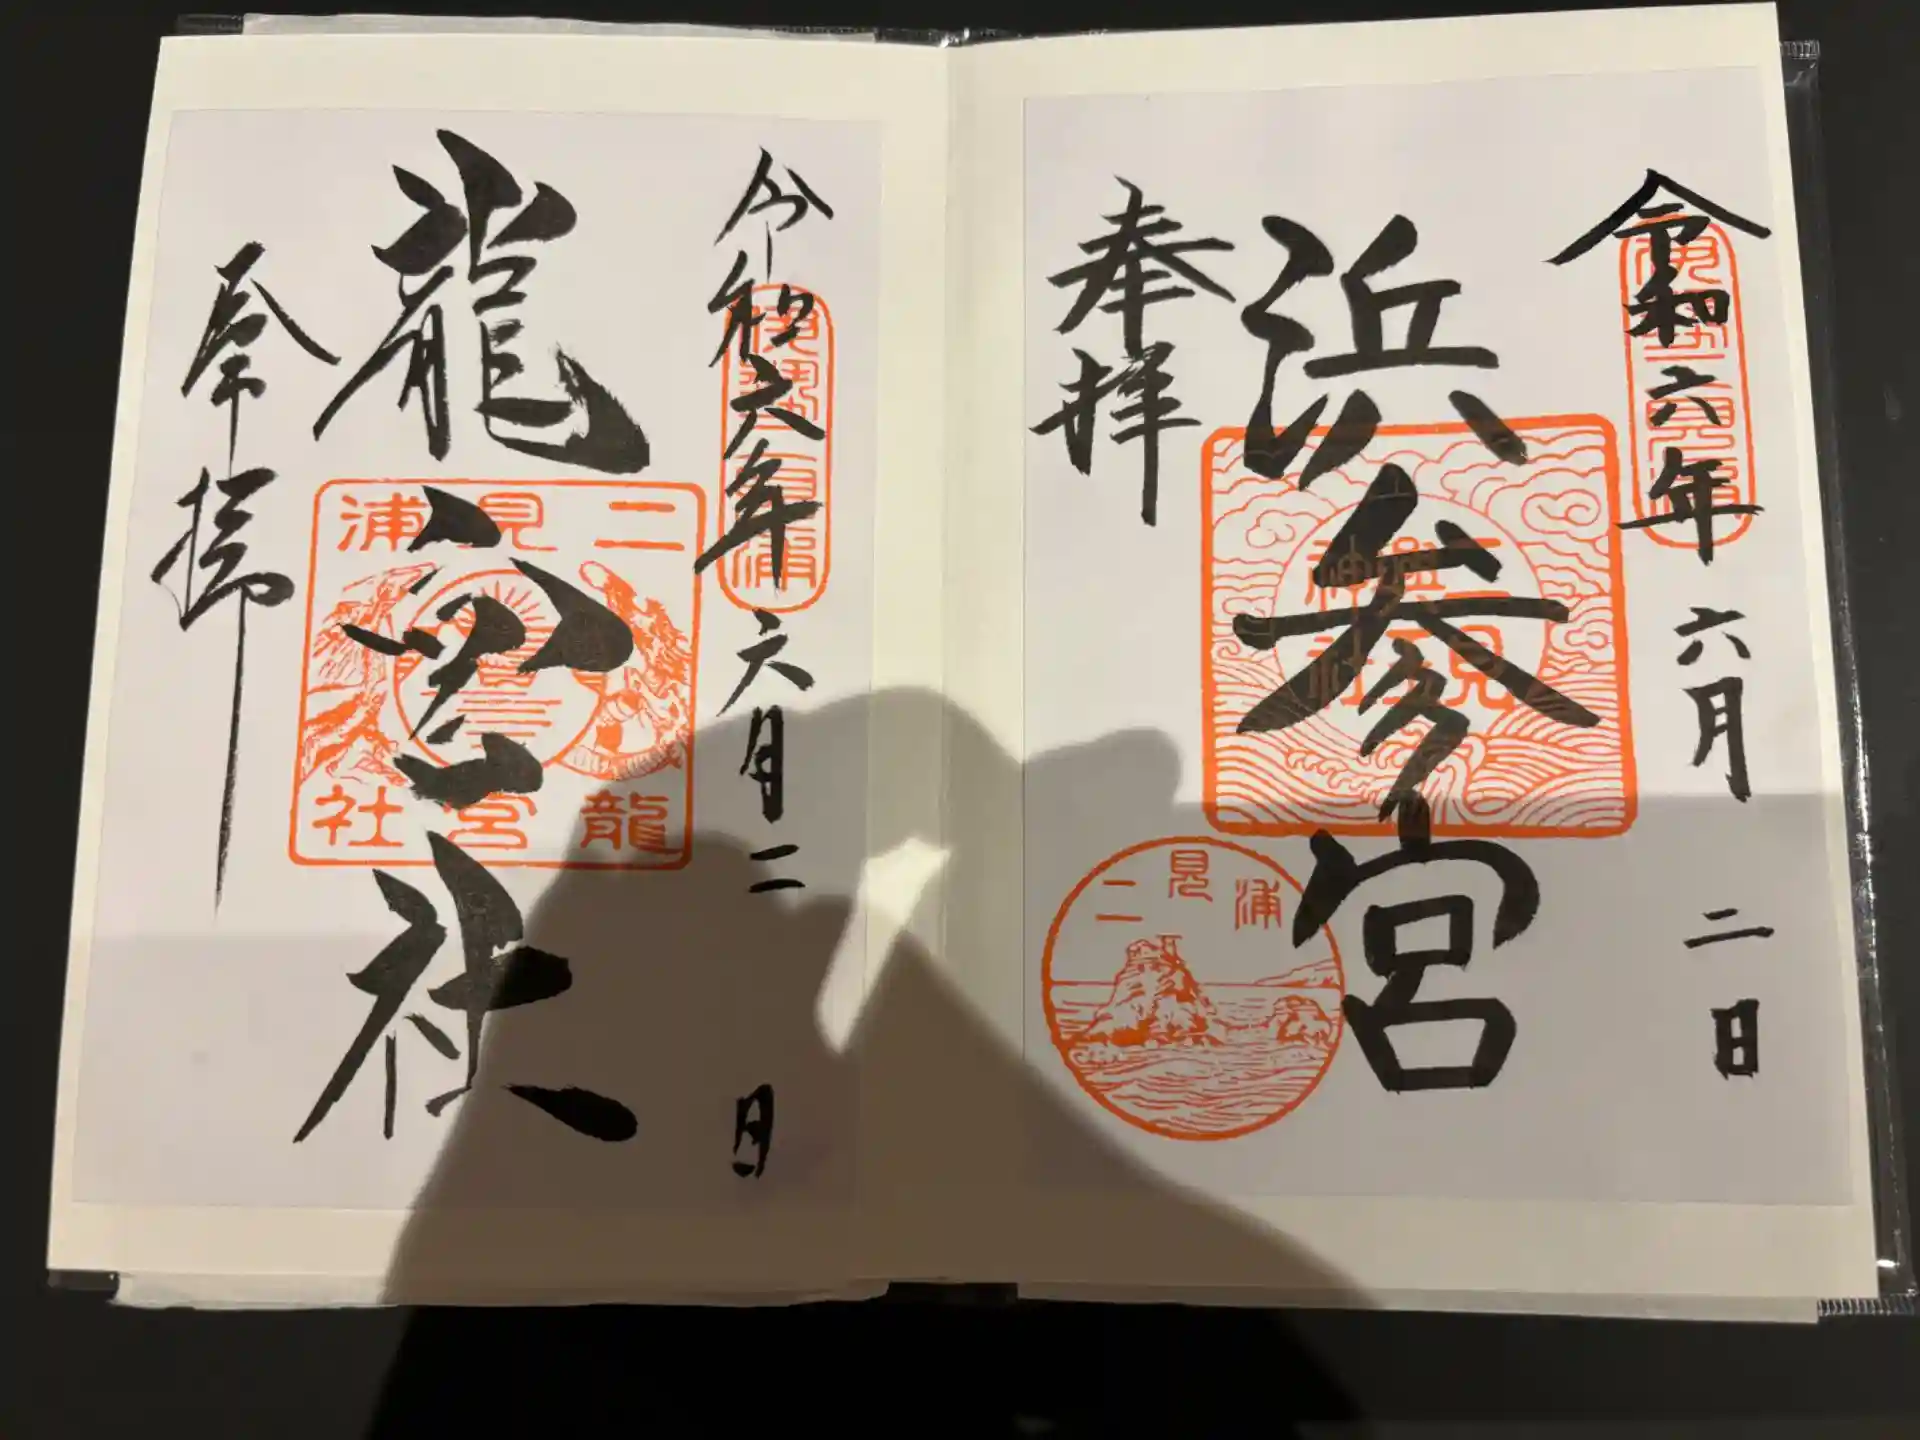 令和六年六月二日
浜参宮
奉拝
伊勢二見浦
二見興玉神社
二見浦
令和六年六月二日
龍宮社
奉拝
伊勢二見浦
二見浦
龍宮社